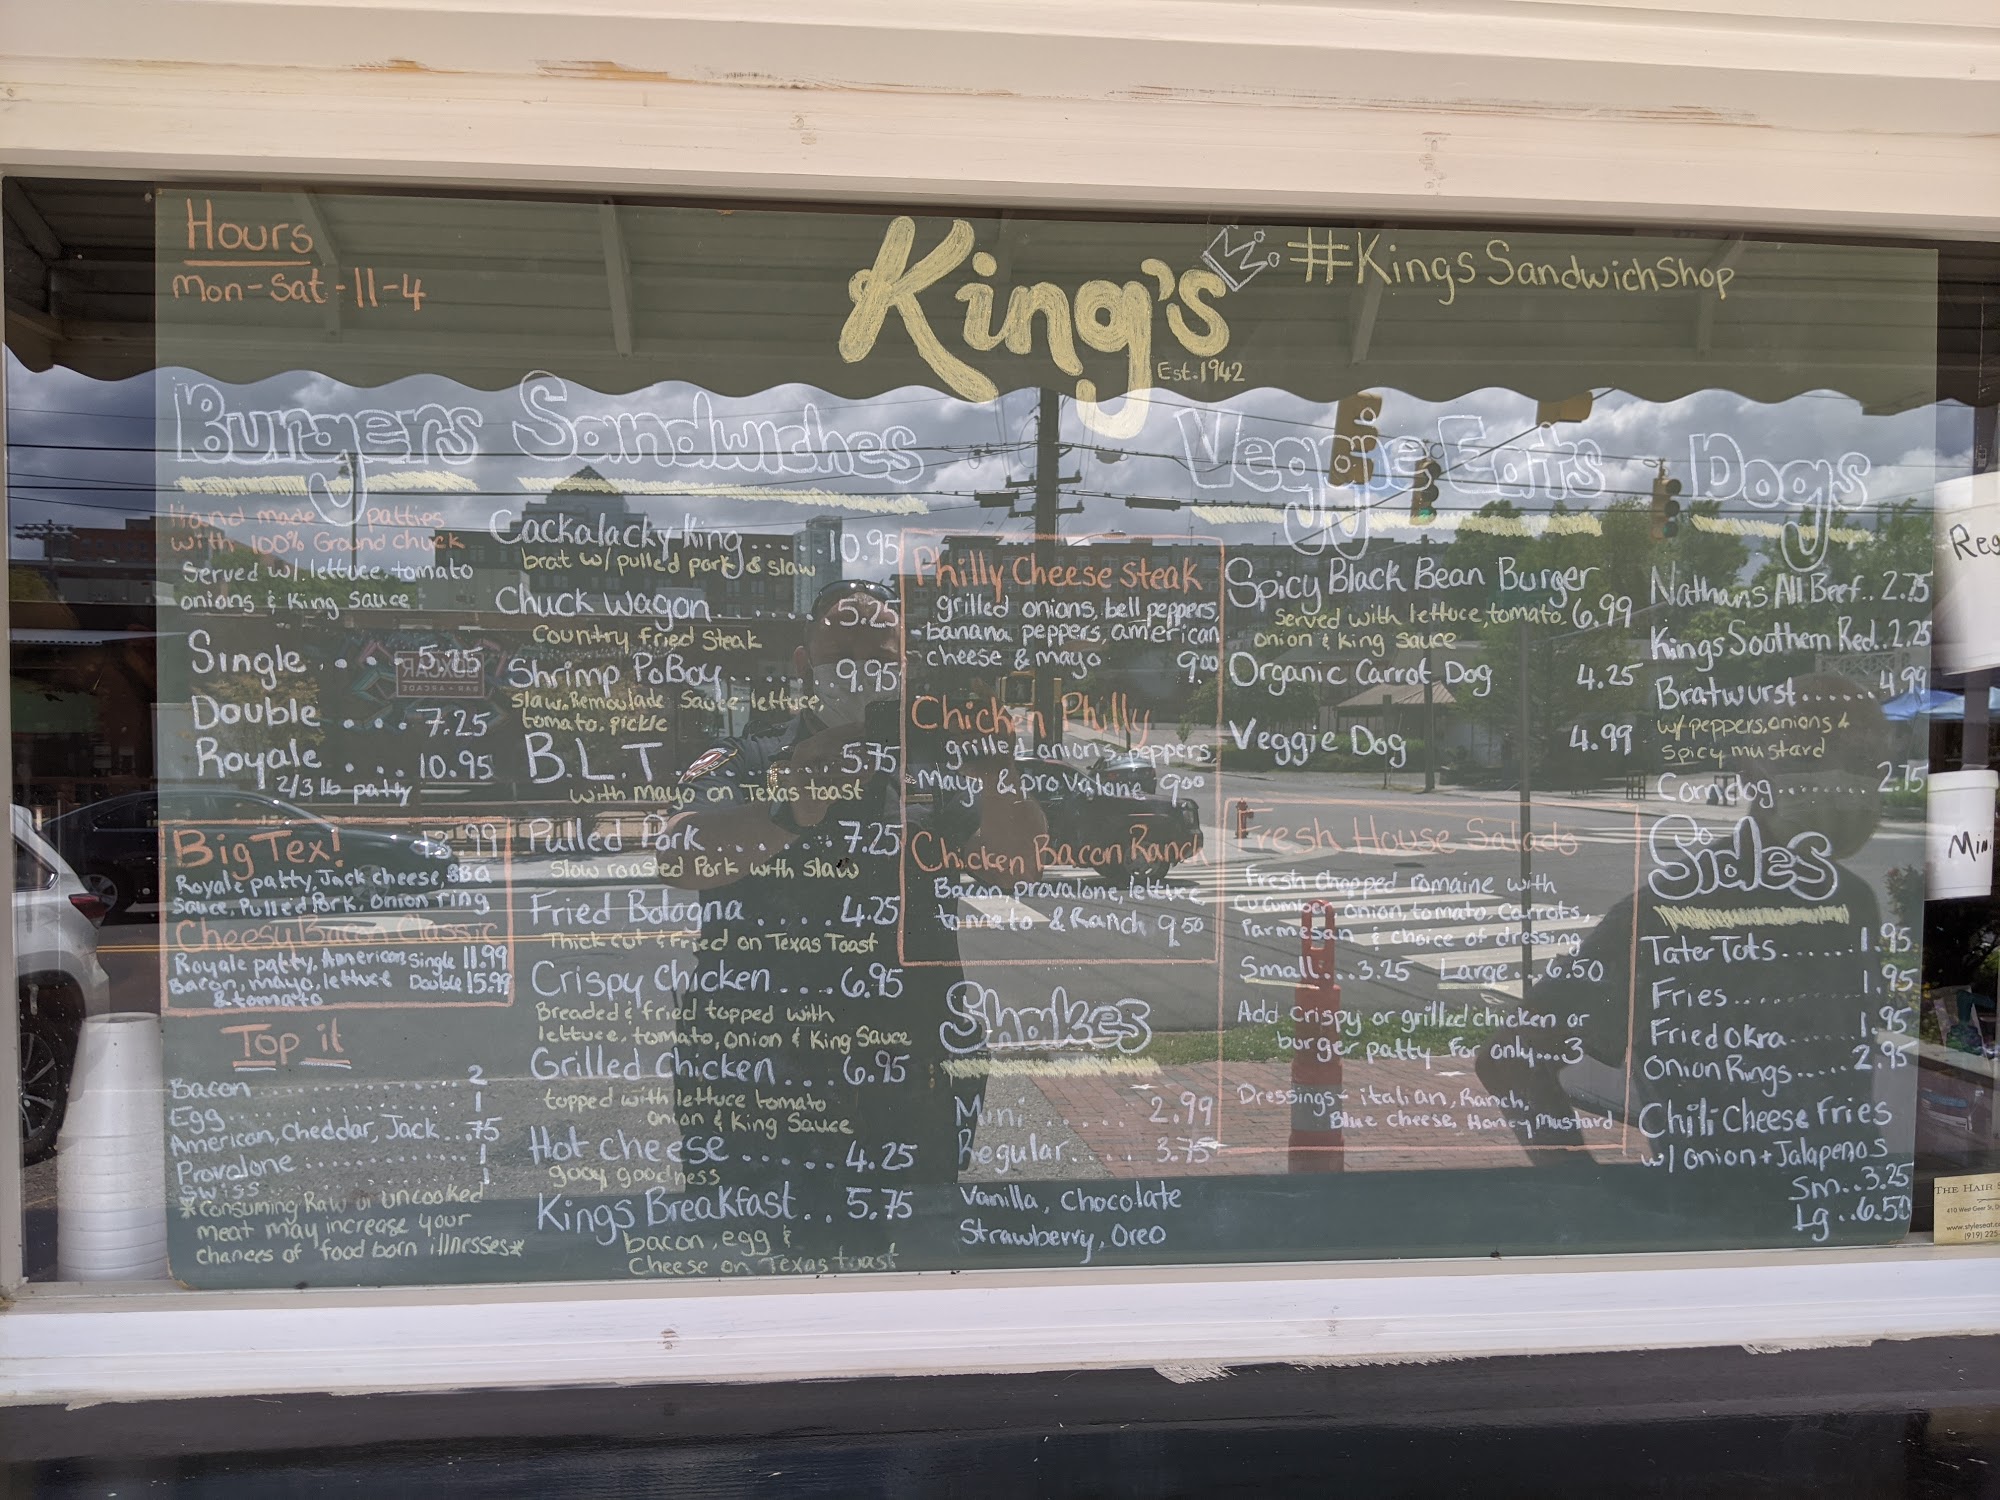 Hours
Mon-Sat-11-4
King's
Est.1942
#KingsSandwichShop
Burgers
Hand made patties
with 100% Ground chuck
Served w/ lettuce, tomato
onions & King Sauce
Single.... 5.25
Double ... 7.25
Royale ... 10.95
2/3 lb patty
Big Tex! 13.99
Royale patty, Jack cheese, BBQ
Sauce, Pulled Pork, Onion ring
Cheesy Bacon Classic
Royale patty, American Single 11.99
Bacon, mayo, lettuce Double 15.99
& tomato
Top it
Bacon.................... 2
Egg...................... 1
American, Cheddar, Jack...75
Provalone ............ 1
Swiss................. 1
*Consuming Raw or uncooked
meat may increase your
chances of food born illnesses*
Sandwiches
Cackalacky King.....10.95
brat w/ pulled pork & slaw
Chuck Wagon........5.25
Country Fried Steak
Shrimp PoBoy......9.95
Slaw, Remoulade Sauce, lettuce,
tomato, pickle
B.L.T.......... 5.75
with Mayo on Texas toast
Pulled Pork.......7.25
Slow roasted Pork with Slaw
Fried Bologna....4.25
Thick cut & Fried on Texas Toast
Crispy Chicken...6.95
Breaded & fried topped with
lettuce, tomato, onion & King Sauce
Grilled Chicken...6.95
topped with lettuce tomato
onion & King Sauce
Hot cheese.....4.25
gooy goodness
Kings Breakfast..5.75
bacon, egg &
Cheese on Texas toast
Philly Cheese Steak
grilled onions, bell peppers,
banana peppers, american
cheese & mayo 9.00
Chicken Philly
grilled onions, peppers,
Mayo & provalone 9.00
Chicken Bacon Ranch
Bacon, provalone, lettuce
tomato & Ranch 9.50
Shakes
Mini...... 2.99
Regular.... 3.75
Vanilla, Chocolate
Strawberry, Oreo
Veggie Eats
Spicy Black Bean Burger
Served with lettuce, tomato 6.99
onion & King Sauce
Organic Carrot Dog 4.25
Veggie Dog 4.99
Fresh House Salads
Fresh chopped romaine with
cucumber, onion, tomato, carrots,
Parmesan & choice of dressing
Small...3.25 Large...6.50
Add crispy or grilled chicken or
burger patty for only....3
Dressings- italian, Ranch,
Blue cheese, Honey mustard
Dogs
Nathans All Beef..2.75
Kings Southern Red..2.25
Bratwurst......4.99
w/ peppers, onions &
spicy mustard
Corndog........2.75
Sides
Tater Tots.....1.95
Fries..........1.95
Fried Okra.....1.95
Onion Rings.....2.95
Chili Cheese Fries
w/ onion + Jalapenos
Sm..3.25
Lg..6.50
Reg
Min
THE HAIR
www.styleseat.c
(919) 225
BOXCAR
BAR + ARCADE